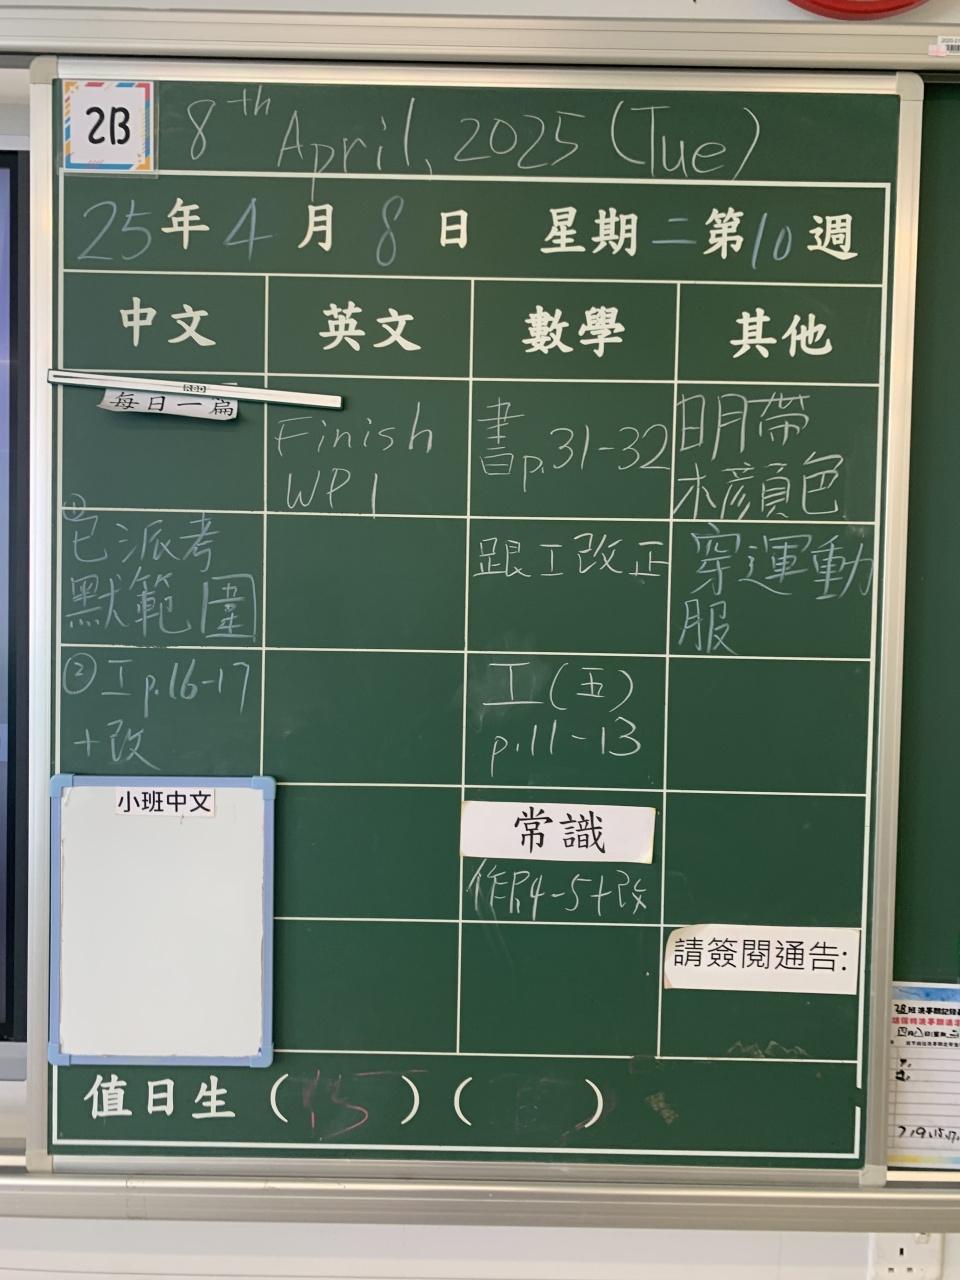 2B
8th April, 2025 (Tue)
25年4月8日 星期二第10週
中文 英文 數學 其他
每日一篇
Finish
WP 1
書p.31-32
明帶
水顏色
①
已派考
默範圍
跟工改正
穿運動
服
② 工p.16-17
+改
工(五)
p.11-13
小班中文
常識
作P.4-5+改
請簽閱通告:
值日生 (15) ( )
2B班
7,9,15,17